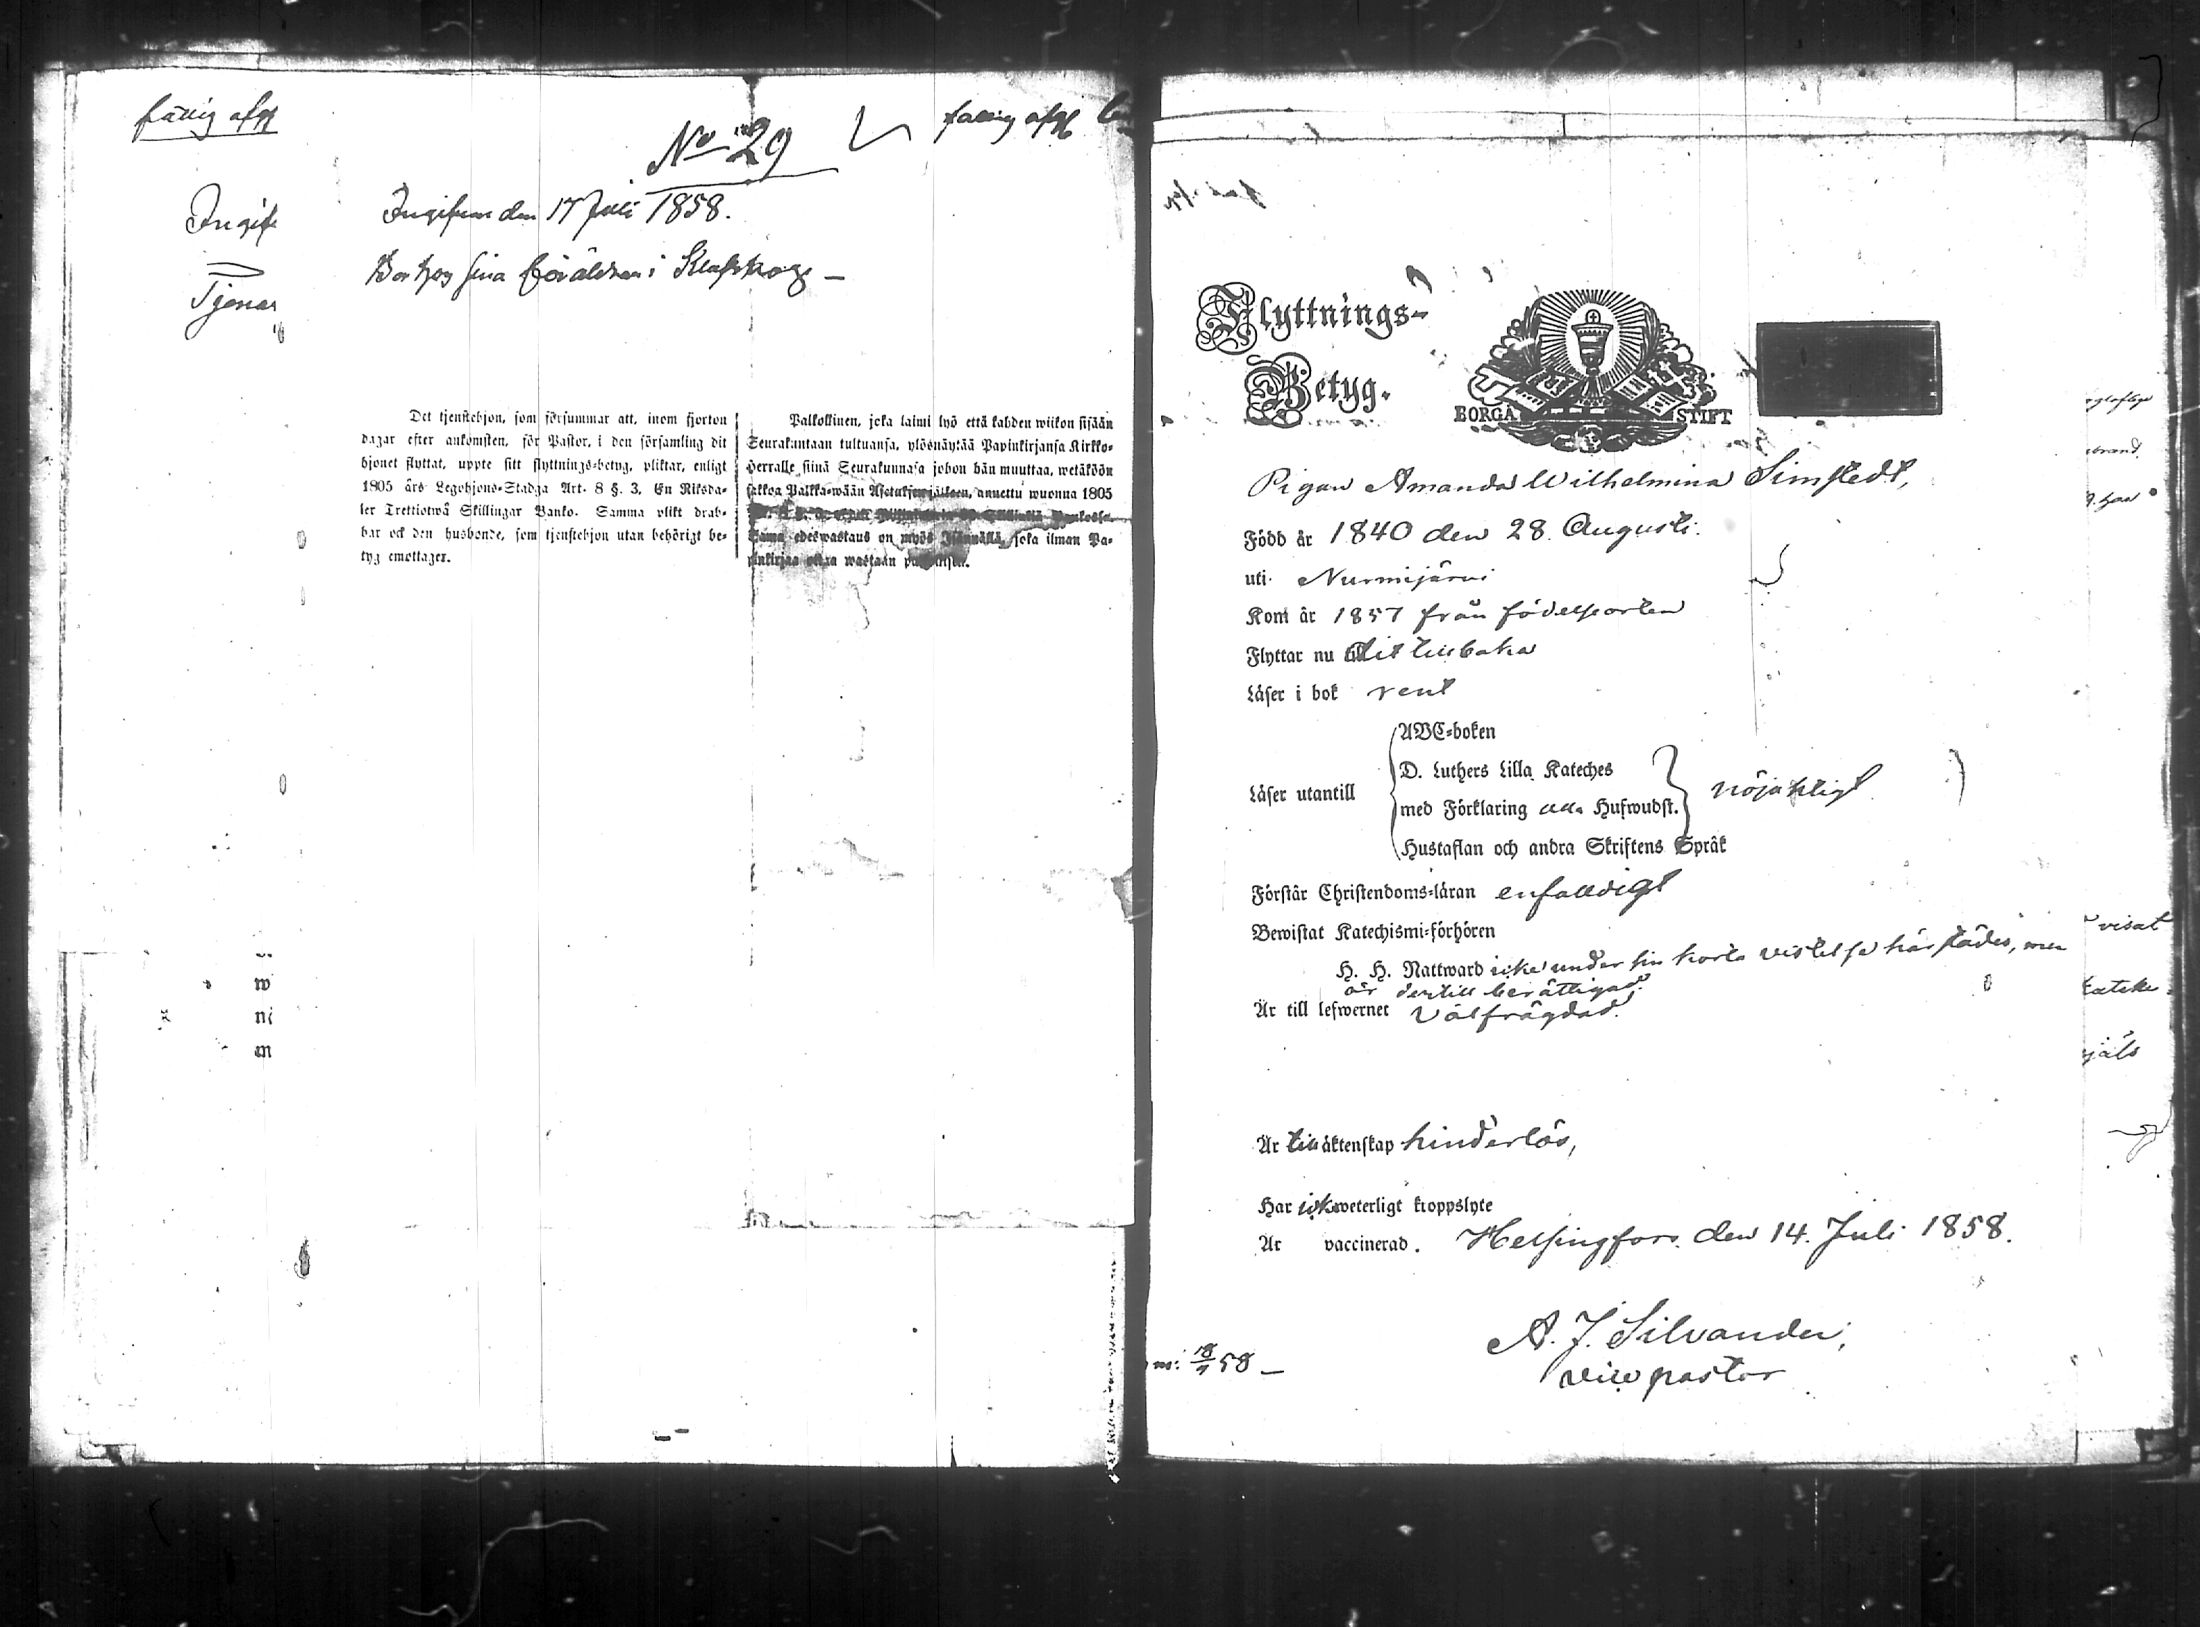 fattig afg
No 29
fattig afg
Ingif
Ingifven den 17 Juli 1858.
Bor hos sina föräldrar i
Tjenar
Det tjenstehjon, som försummar att, inom fjorton
dagar efter ankomsten, för Pastor, i den församling dit
hjonet flyttat, uppte sitt flyttnings-betyg, pliktar, enligt
1805 års Legohjons-Stadga Art. 8 §. 3. En Riksda-
ler Trettiotwå Skillingar Banko. Samma plikt drab-
bar ock den husbonde, som tjenstehjon utan behörigt be-
tyg emottager.
Palkollinen, joka laimi lyö että kahden wiikon sisään
Seurakuntaan tultuansa, ylösnäyttää Papinkirjansa Kirkko-
herralle siinä Seurakunnasa johon hän muuttaa, wetäköön
sakkoa Palkka-wään Asetuksen jälkeen, annettu wuonna 1805
Sama edeswastaus on myös Isännällä, joka ilman Pa-
pinkirjaa ottaa wastaan
w
ni
m
Flyttnings-
Betyg.
BORGÅ STIFT
Pigan Amanda Wilhelmina Simstedt,
Född år 1840 den 28. Augusti.
uti Nurmijärvi
Kom år 1857 från födelseorten
Flyttar nu dit tillbaka
Läser i bok rent
Läser utantill
ABC-boken
D. Luthers Lilla Kateches
med Förklaring Hufwudst.
Hustaflan och andra Skriftens Språk
nöjaktligt
Förstår Christendoms-läran enfalldigt
Bewistat Katechismi-förhören
H. H. Nattward icke under sin korta vistelse härstädes, men
är dertill berättigad.
Är till lefwernet välfrägdad.
Är till äktenskap hinderlös,
Har icke weterligt kroppslyte
Är vaccinerad. Helsingfors den 14. Juli 1858.
A. J. Silvander,
vice pastor
visat